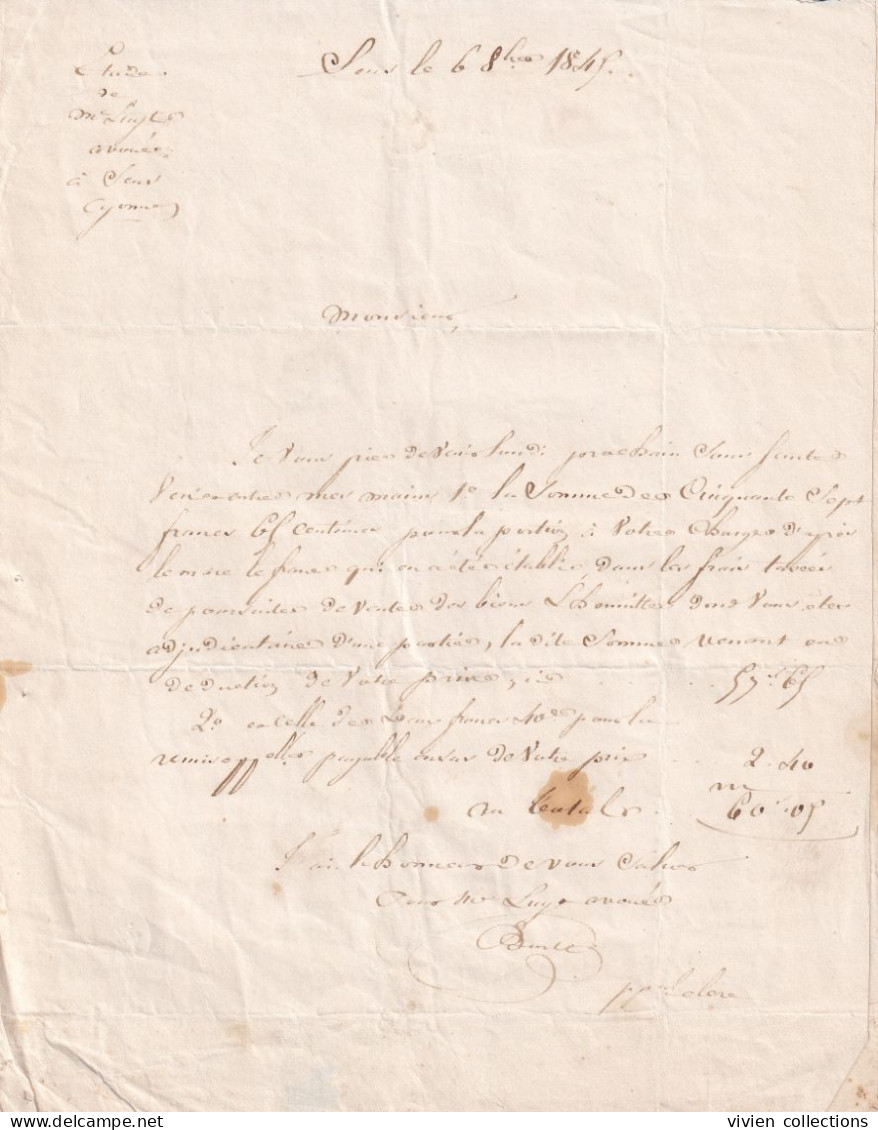 Sens le 6 8bre 1845.
Etude
de
Me
avoué
à Sens
(Yonne)
Monsieur,
Je vous prie de lundi prochain sans faute
entre mes mains 1o la somme de Cinquante Sept
francs 65 centimes pour la portion à votre charge d'après
le marc le franc qui en a été établi dans les frais taxés
de poursuites de vente des biens dont vous êtes
adjudicataire d'une partie, la dite somme venant en
déduction de votre prix, ci 57f 65
2o et celle de deux francs 40c pour la
remise pplle payable en sus de votre prix 2. 40
au total 60f. 05
J'ai l'honneur de vous saluer
Pour Me avoué
ppal clerc
vivien collections